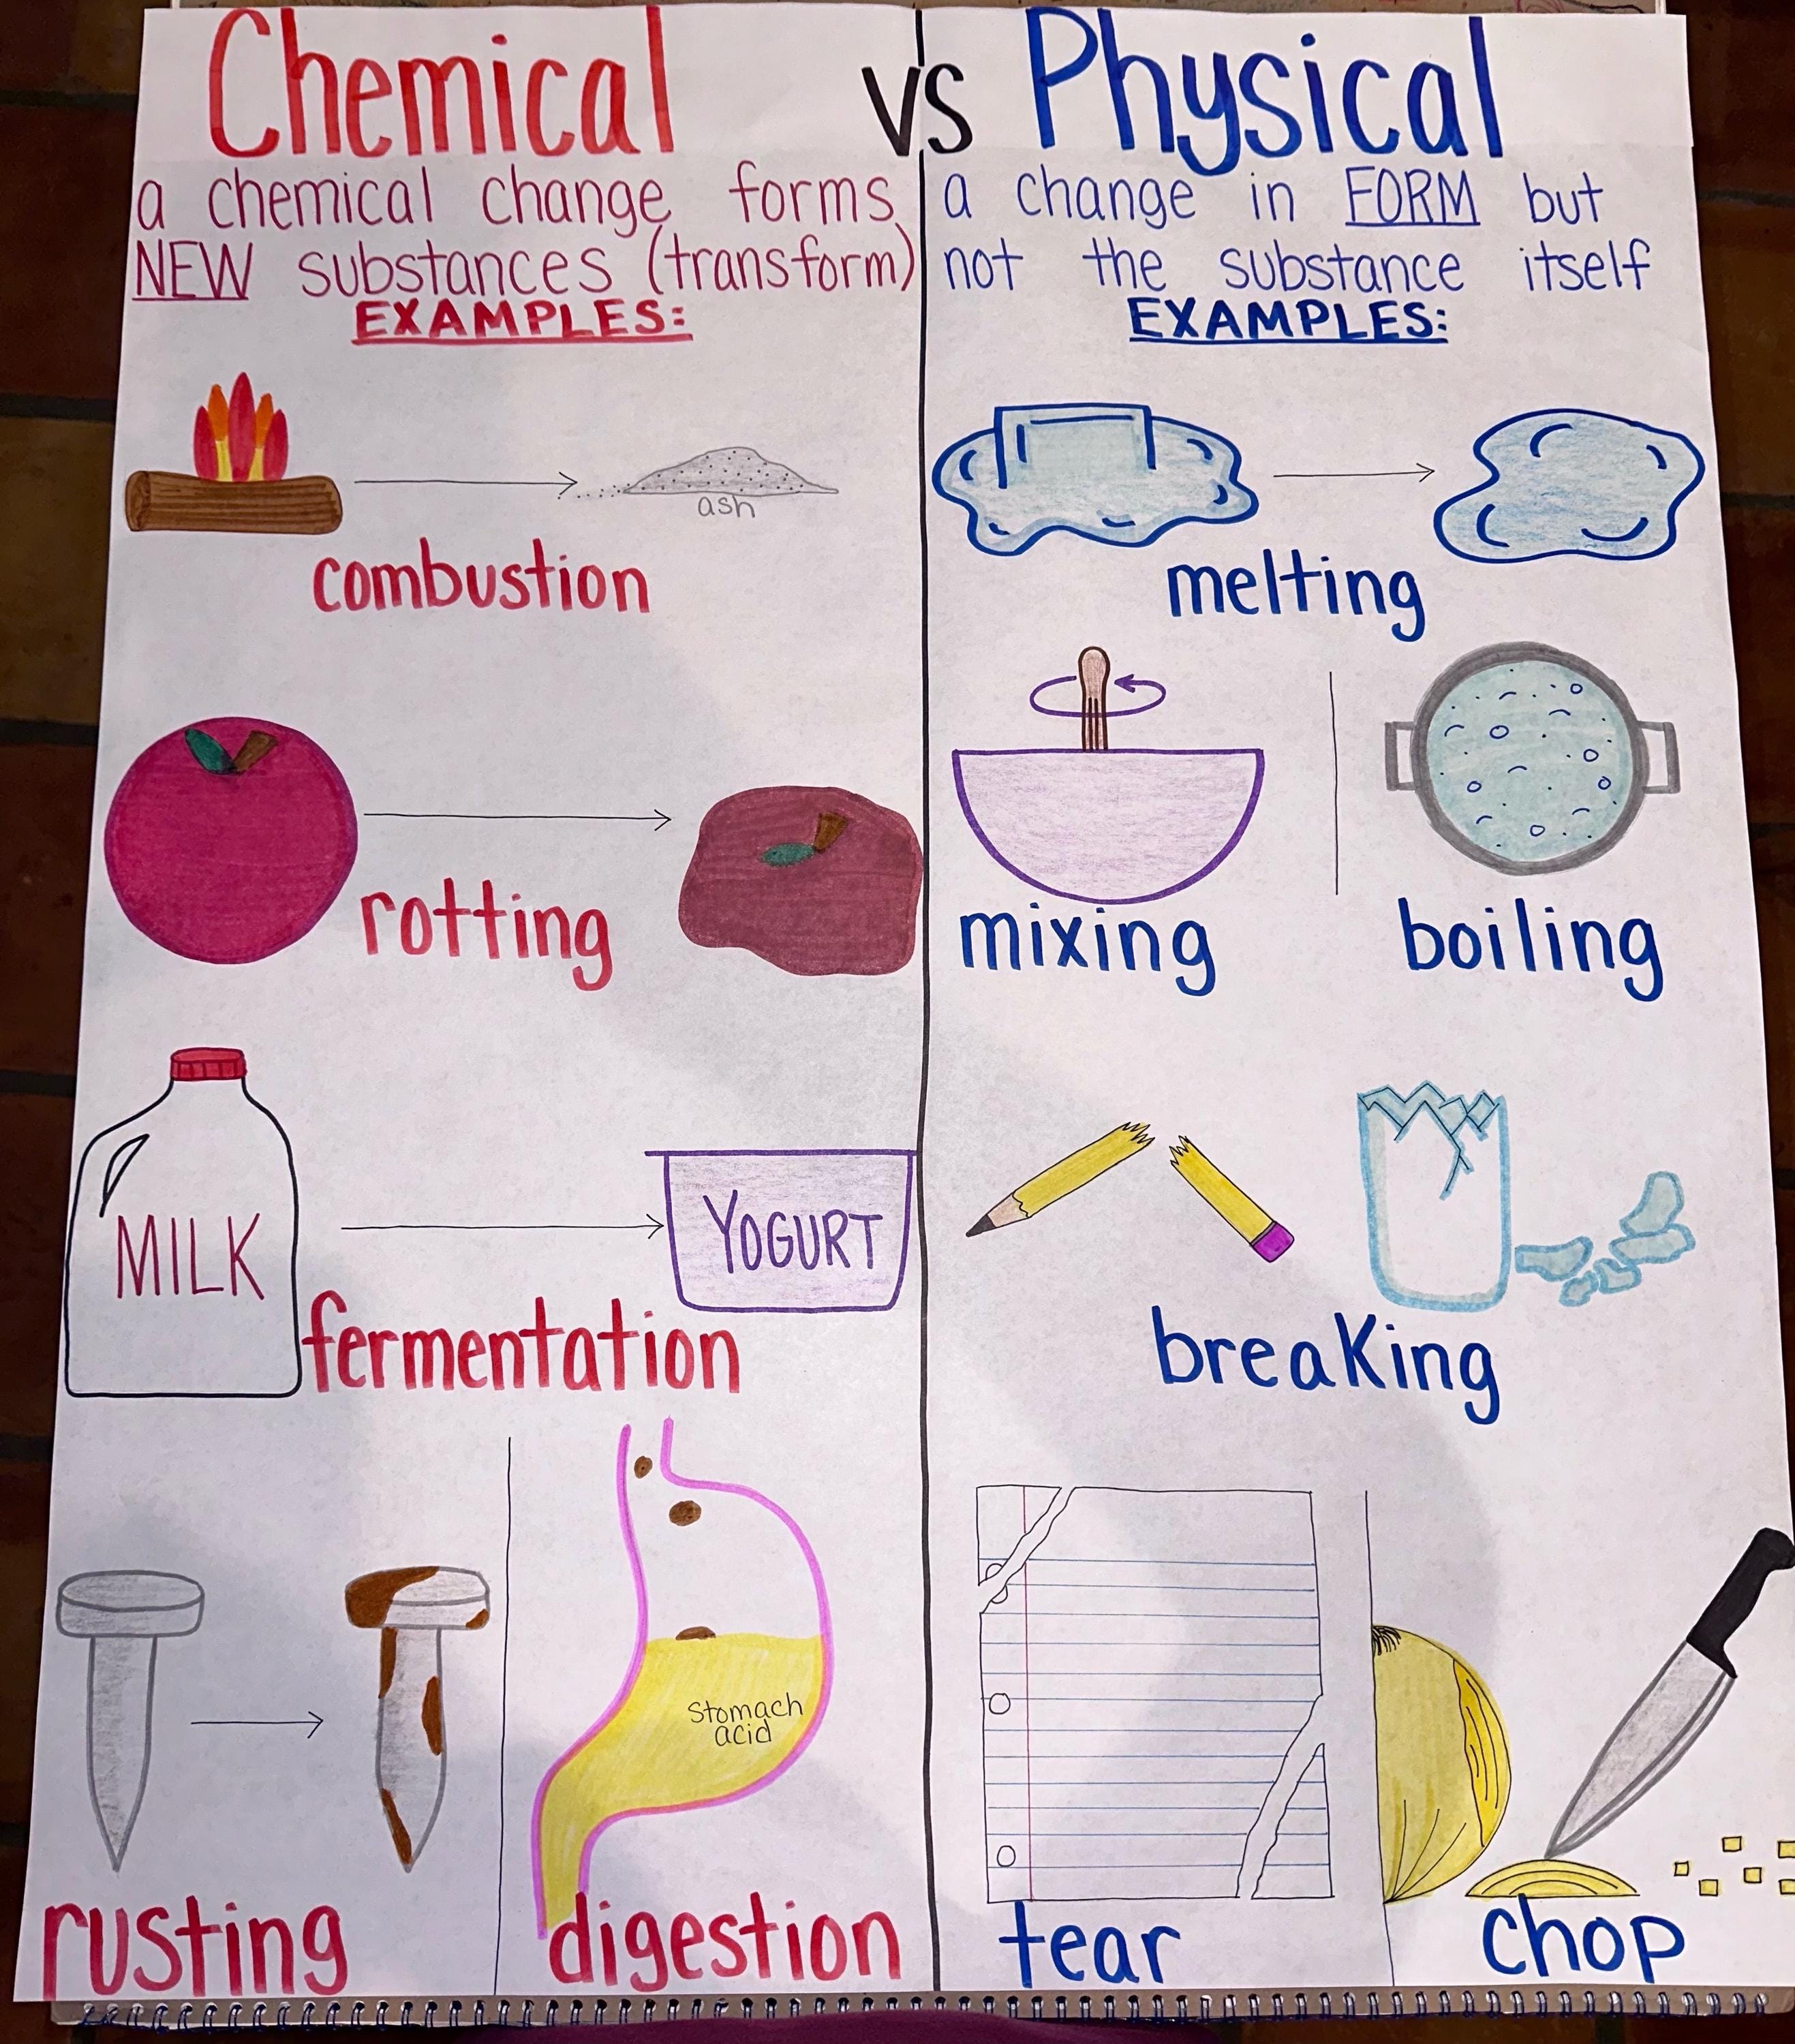 Chemical vs Physical
a chemical change forms
NEW substances (transform)
EXAMPLES:
ash
combustion
rotting
MILK
YOGURT
fermentation
rusting
Stomach
acid
digestion
a change in FORM but
not the substance itself
EXAMPLES:
melting
mixing
boiling
breaking
tear
chop